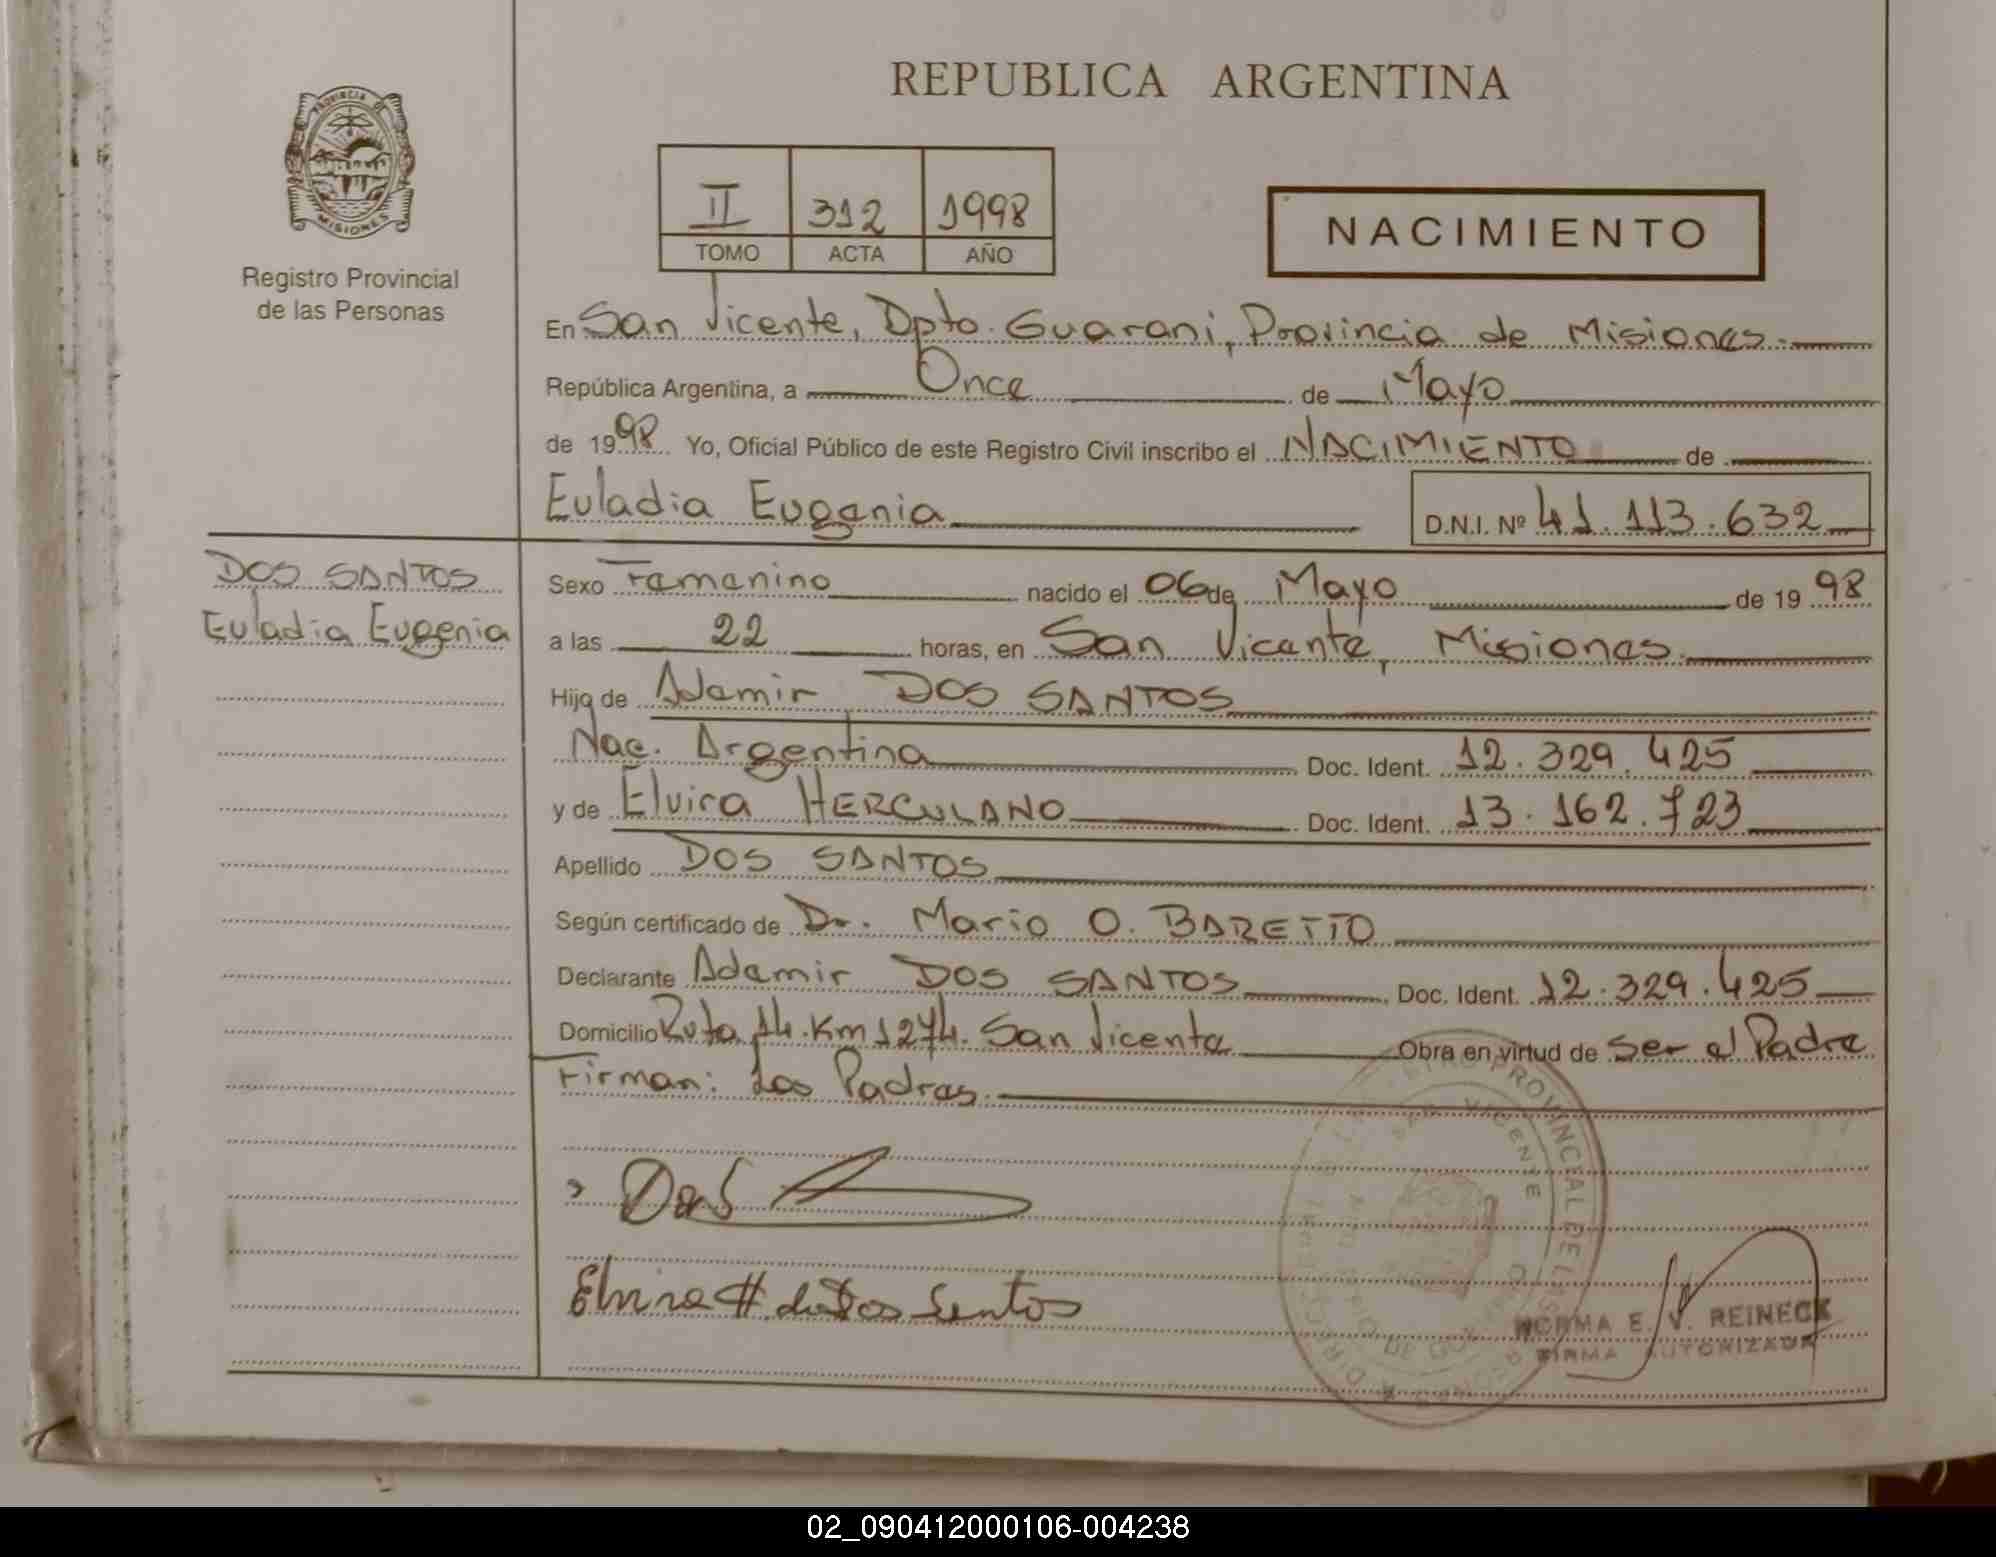 REPUBLICA ARGENTINA
PROVINCIA DE
MISIONES
Registro Provincial
de las Personas
II 312 1998
TOMO ACTA AÑO
NACIMIENTO
En San Vicente, Dpto. Guarani, Provincia de Misiones.
República Argentina, a Once de Mayo
de 1998 Yo, Oficial Público de este Registro Civil inscribo el NACIMIENTO de
Euladia Eugenia D.N.I. Nº 41.113.632
DOS SANTOS
Euladia Eugenia
Sexo Femenino nacido el 06 de Mayo de 1998
a las 22 horas, en San Vicente, Misiones.
Hijo de Ademir DOS SANTOS
Nac. Argentina Doc. Ident. 12.329.425
y de Elvira HERCULANO Doc. Ident. 13.162.723
Apellido DOS SANTOS
Según certificado de Dr. Mario O. BARETTO
Declarante Ademir DOS SANTOS Doc. Ident. 12.329.425
Domicilio Ruta 14. Km 1274. San Vicente Obra en virtud de Ser el Padre
Firman: Los Padres.
Elvira H. de Dos Santos
SAN VICENTE
PROVINCIAL DE LAS
NORMA E. V. REINECK
FIRMA AUTORIZADA
02_090412000106-004238